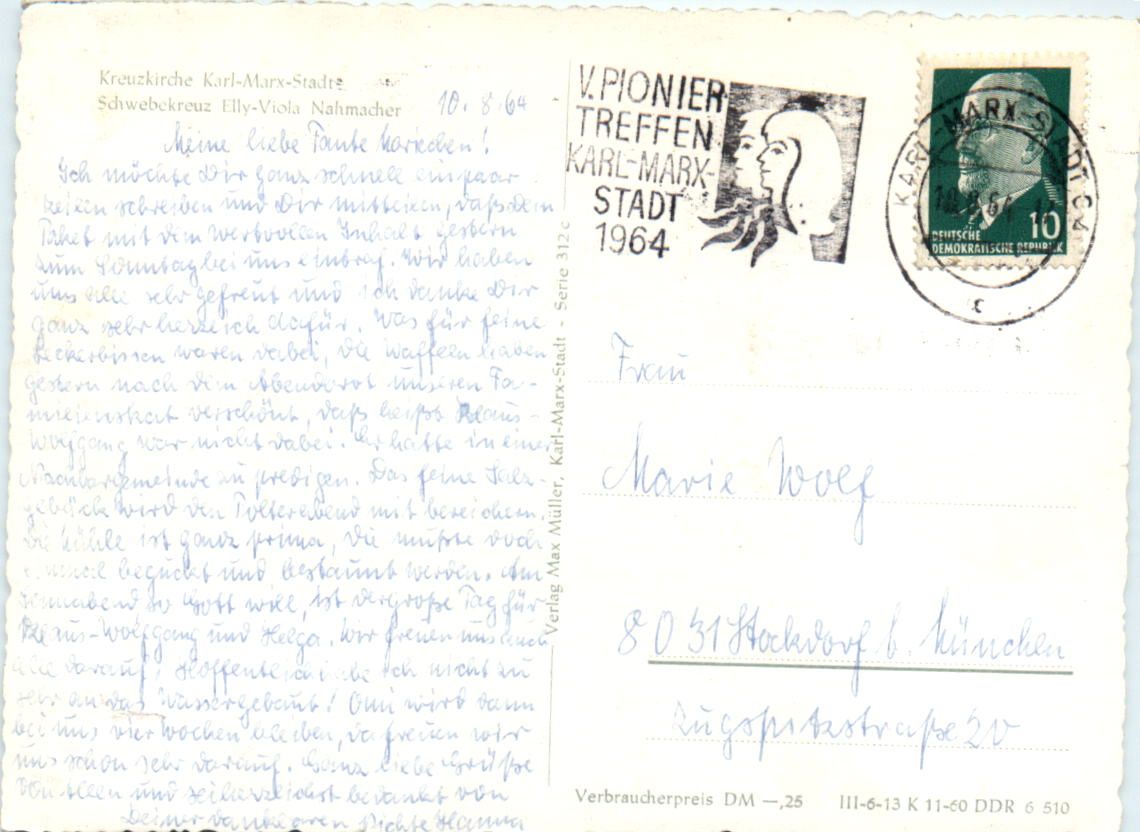 Kreuzkirche Karl-Marx-Stadt
Schwebekreuz Elly-Viola Nahmacher
10. 8. 64
Meine liebe Tante Mariechen!
Ich möchte Dir ganz schnell ein paar
Zeilen schreiben und Dir mitteilen, daß dein
Paket mit dem wertvollen Inhalt gestern
zum Sonntag bei uns eintraf. Wir haben
uns alle sehr gefreut und ich danke Dir
ganz sehr herzlich dafür. Was für feine
Leckerbissen waren dabei, die Waffeln haben
gestern nach dem Abendbrot unseren Fa-
milienskat verschönt, daß heißt Klaus-
Wolfgang war nicht dabei. Er hatte in einer
Nachbargemeinde zu predigen. Das feine Salz-
gebäck wird den Polterabend mit bereichern.
Die ist ganz prima, die mußte doch
einmal beguckt und bestaunt werden. Am
Sonnabend so Gott will, ist der große Tag für
Klaus-Wolfgang und Helga. Wir freuen uns auch
alle darauf. Hoffentlich habe ich nicht zu
sehr an das Wasser gebaut! Omi wird dann
bei uns vier Wochen bleiben, da freuen wir
uns schon sehr darauf. Ganz liebe Grüße
von allen und sei herzlichst bedankt von
Deiner dankbaren Nichte Hanna
Verlag Max Müller, Karl-Marx-Stadt - Serie 312 c
V. PIONIER
TREFFEN
KARL-MARX-
STADT
1964
KARL-MARX-STADT C4
10.8.64
c
10
DEUTSCHE
DEMOKRATISCHE REPUBLIK
Frau
Marie Wolf
8031 Stockdorf b. München
Zugspitzstraße 20
Verbraucherpreis DM —,25 III-6-13 K 11-60 DDR 6 510